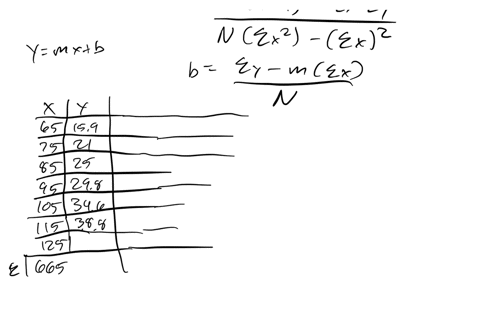 N (Σx²) - (Σx)²
Y = mx + b
b = Σy - m(Σx)
N
X Y
65 15.9
75 21
85 25
95 29.8
105 34.6
115 38.8
125
Σ 665